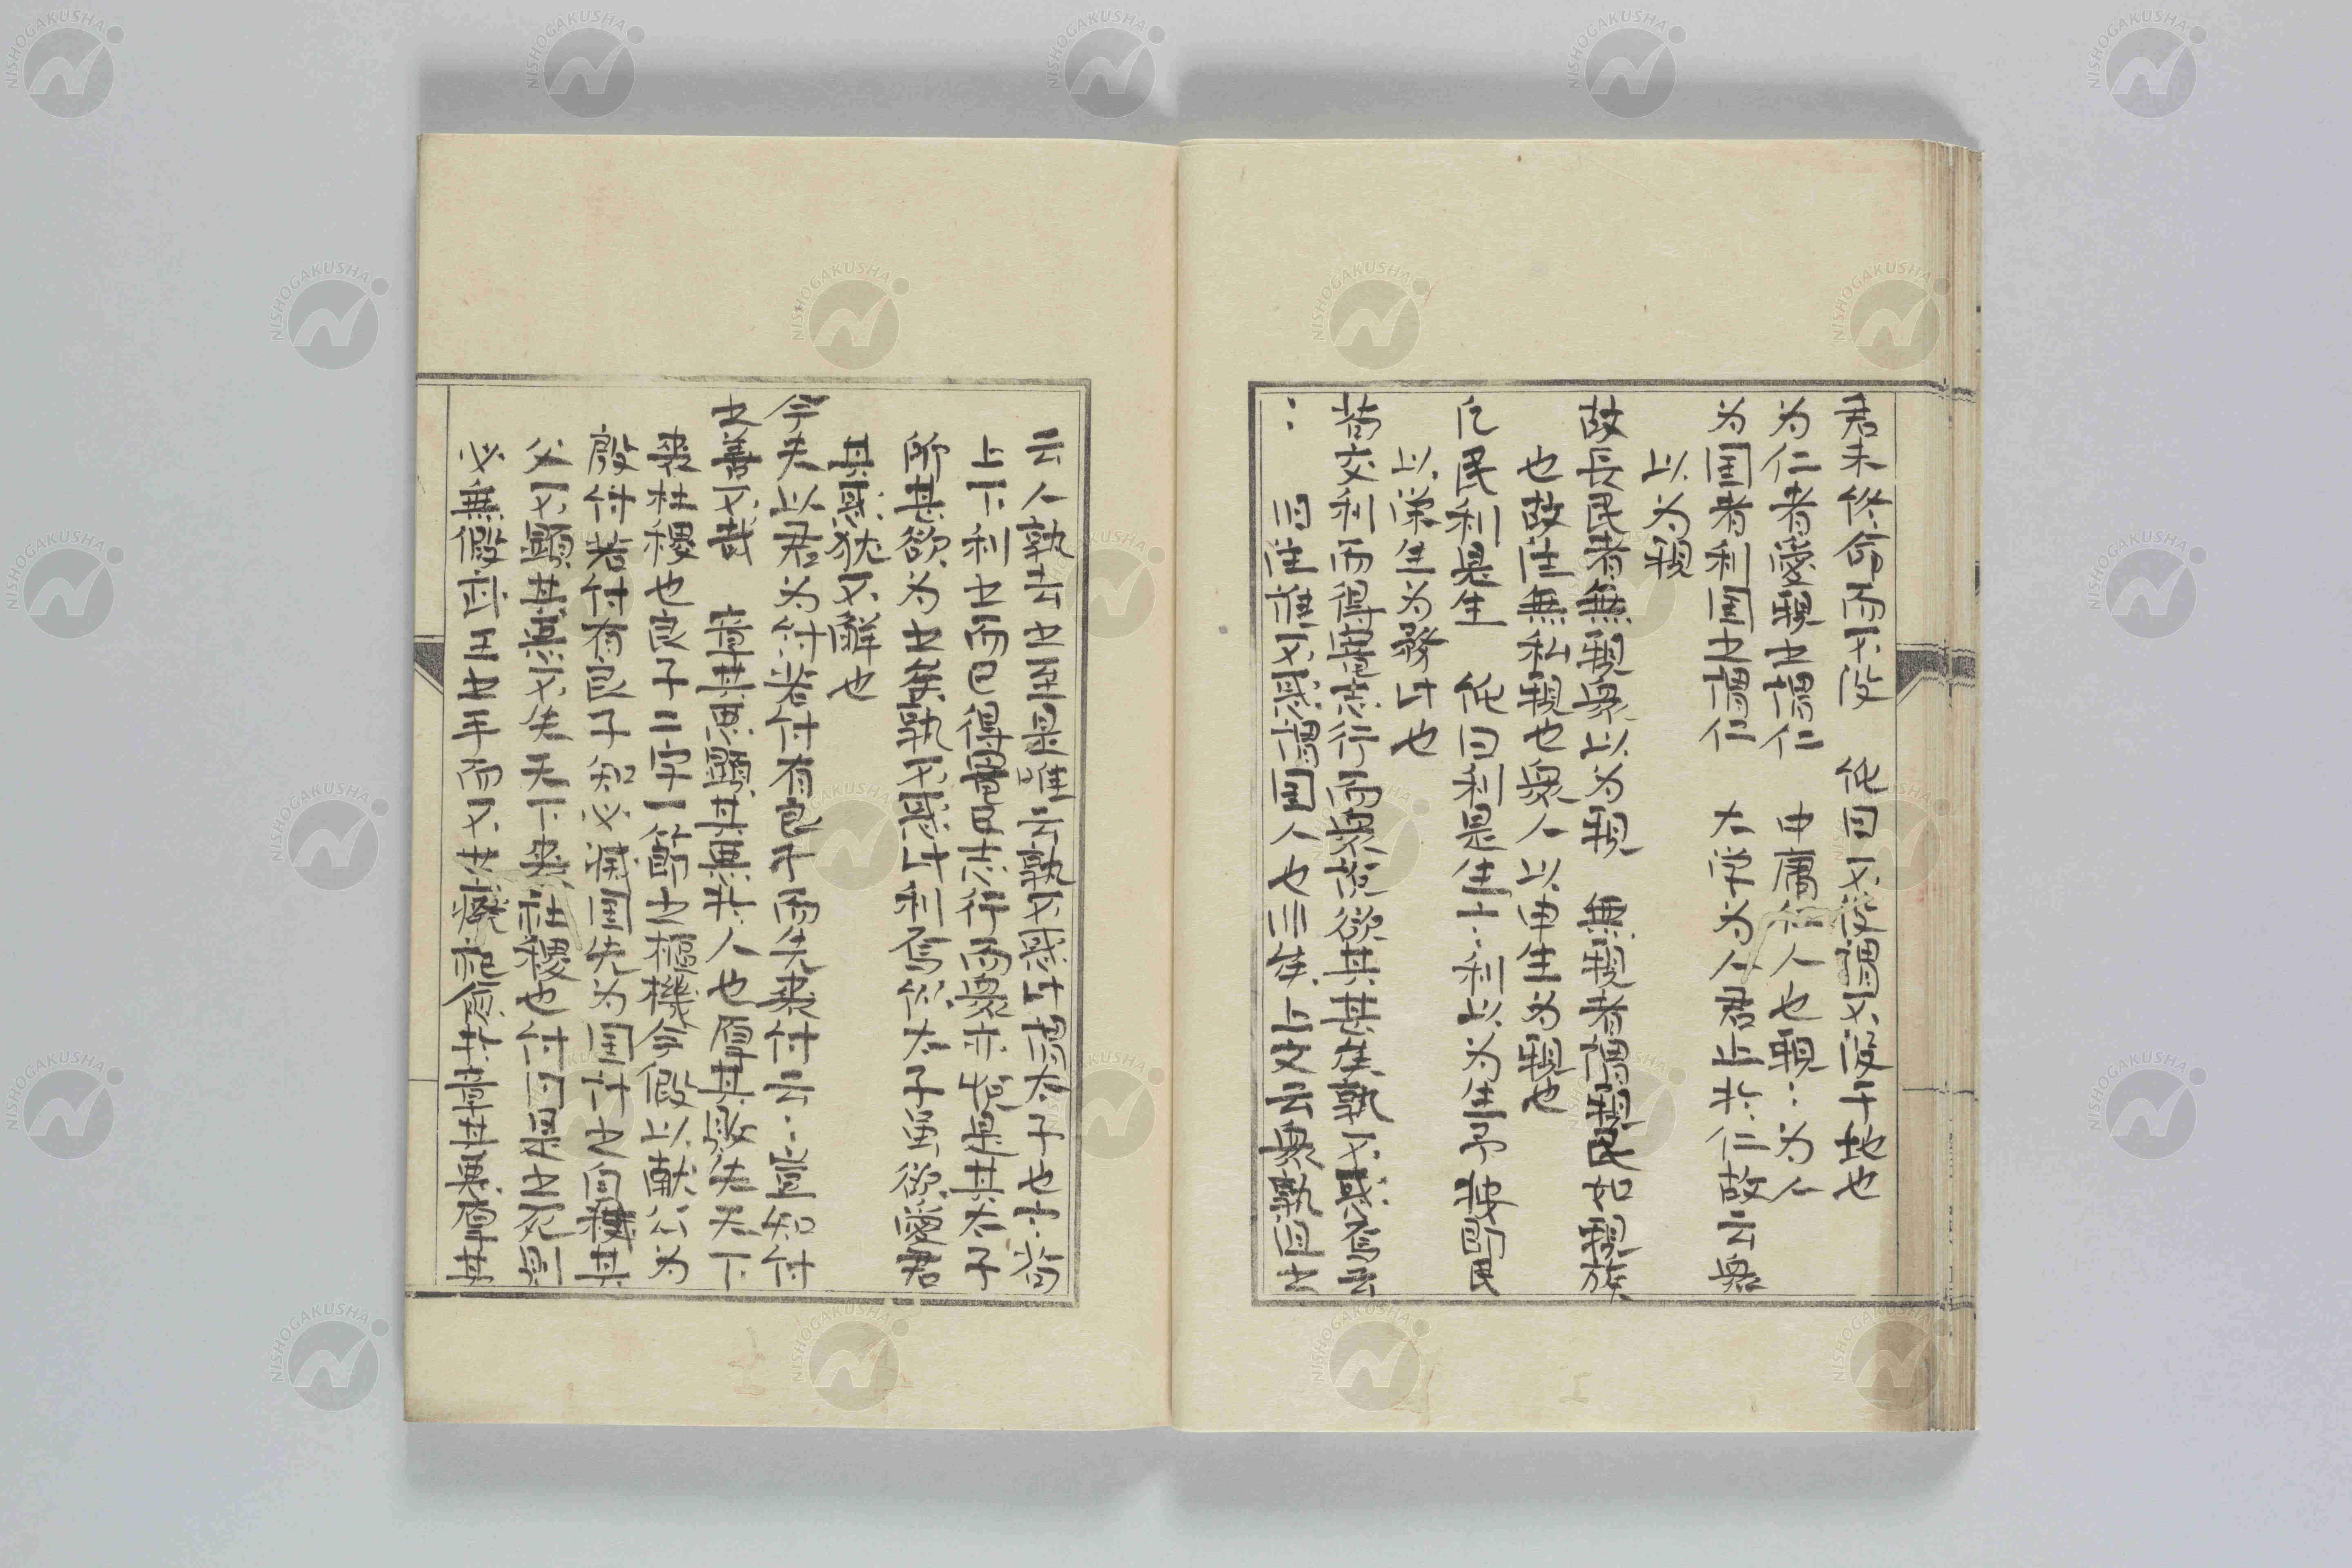 君未終命而不没　佗曰不没謂不没于地也
為仁者愛親之謂仁　中庸仁人也親〻為仁
為国者利国之謂仁　大学為人君止於仁故云衆
以為親
故長民者無親衆以為親　無親者謂親民如親族
也故生無私親也衆人以申生為親也
凡民利是生　佗曰利是生上〻利以為生予按即民
以栄生為務計也
苟交利而得寵志行而衆悦欲其甚矣孰不惑焉云
〻　旧注誰不惑謂国人也非矣上文云衆孰沮之
云人孰去之至是唯云孰不惑計謂太子也〻苟
上下利之而已得寵且志行而衆亦悦是其太子
所甚欲為之矣孰不惑計利焉仍太子虽欲愛君
其惑猶不解也
今夫以君為紂若紂有良子而先喪紂云〻豈知紂
之善不哉　章其悪顕其悪於人也厚其敗失天下
喪社稷也良子二字一節之樞機今假以献公為
殷紂若紂有良子知必滅国先為国討之何穫其
父不顕其悪不失天下喪社稷也紂曰是之死則
必無假武王之手而不世廃祀愈於章其悪厚其